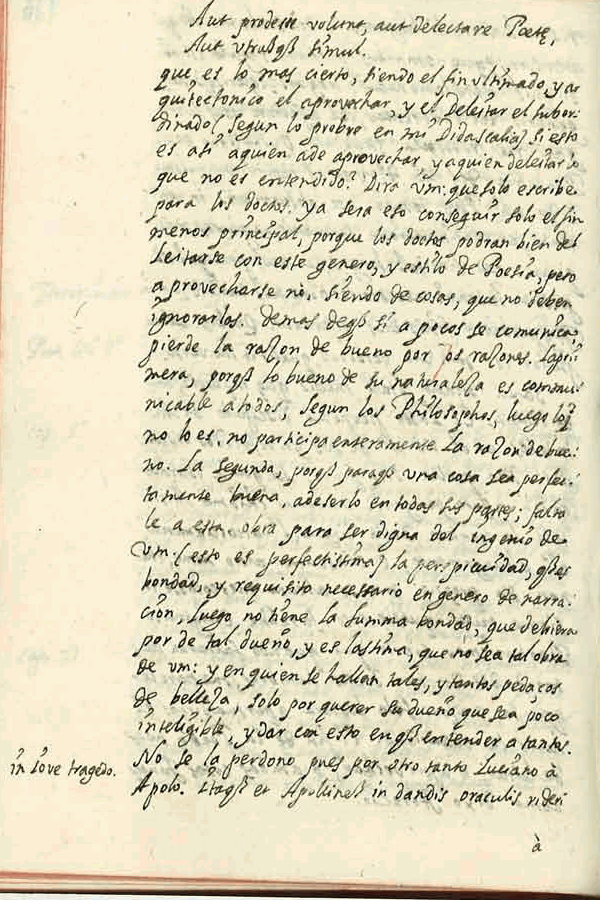 Aut prodesse volunt, aut delectare Poetę,
Aut vtrabqȝ simul.
que es lo mas cierto, siendo el fin vltimado, y ar
quitectonico el aprovechar, y el deleitar el subor:
dinado (segun lo probre en mi Didascalia) Si esto
es asi aquien ade aprovechar y aquien deleitar lo
que no es entendido? Dira vm: que solo escribe
para los doctos. ya sera eso conseguir solo el fin
menos principal, porque los doctos podran bien del
leitarse con este genero, y estilo de Poesia, pero
aprovecharse no, siendo de cosas, que no deben
ignorarlos. demas deqȝ si a pocos se comunica,
pierde la razon de bueno por os razones. La pri
mera, porqȝ lo bueno de su naturaleza es commu:
nicable a todos, segun los Philosophos, luego loq̃
no lo es, no participa enteramente la razon de bue:
no. La segunda, porqȝ paraqȝ una cosa sea perfec:
tamente buena, adeserlo en todas sus partes; falta
le a esta obra para ser digna del ingenio de
vm. (esto es perfectissima) la perspicuidad, qȝ es
bondad, y requisito necessario en genero de narra:
cion, luego no tiene la summa bondad, que debiera
por de tal dueño, y es lastima, que no sea tal obra
de vm: y en quien se hallan tales, y tantos pedaços
de belleza, solo por querer su dueño que sea poco
inteligible, y dar con esto en qȝ entender a tantos.
No se la perdono pues por otro tanto Luciano à
in Iove tragędo.
Apolo. Itaqȝ et Apollineȝ in dandis oraculis rideri
à